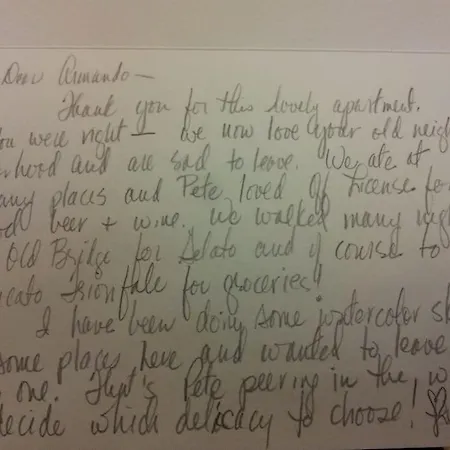 Dear Armando —
Thank you for this lovely apartment.
ou were right — we now love your old neigh
erhood and are sad to leave. We ate at
any places and Pete loved for
od beer + wine. We walked many nigh
Old Bridge for Gelato and of course to
cato Trionfale for groceries!
I have been doing some watercolor sk
some places here and wanted to leave
one. That's Pete peering in the w
decide which delicacy to choose!